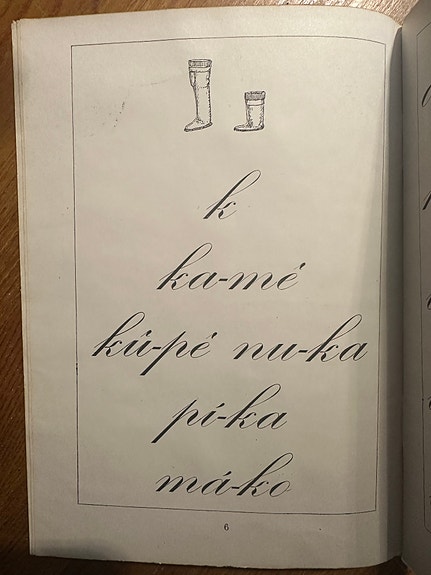 k
ka-mé
kû-pé nu-ka
pí-ka
má-ko
6